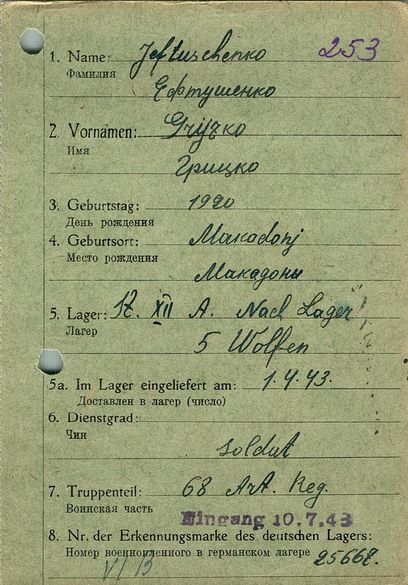 253
1. Name: Jeftuschenko
Фамилия
Ефтушенко
2. Vornamen: Grijzko
Имя
Грицко
3. Geburtstag: 1920
День рождения
4. Geburtsort: Makadonj
Место рождения
Македоны
5. Lager: XII A. Nach Lager
Лагер
5 Wolfen
5a. Im Lager eingeliefert am: 1.4.43.
Доставлен в лагер (число)
6. Dienstgrad:
Чин
soldat
7. Truppenteil: 68 Art. Reg.
Воинская часть
Eingang 10.7.43
8. Nr. der Erkennungsmarke des deutschen Lagers:
Номер военнопленного в германском лагере 25662.
VI B